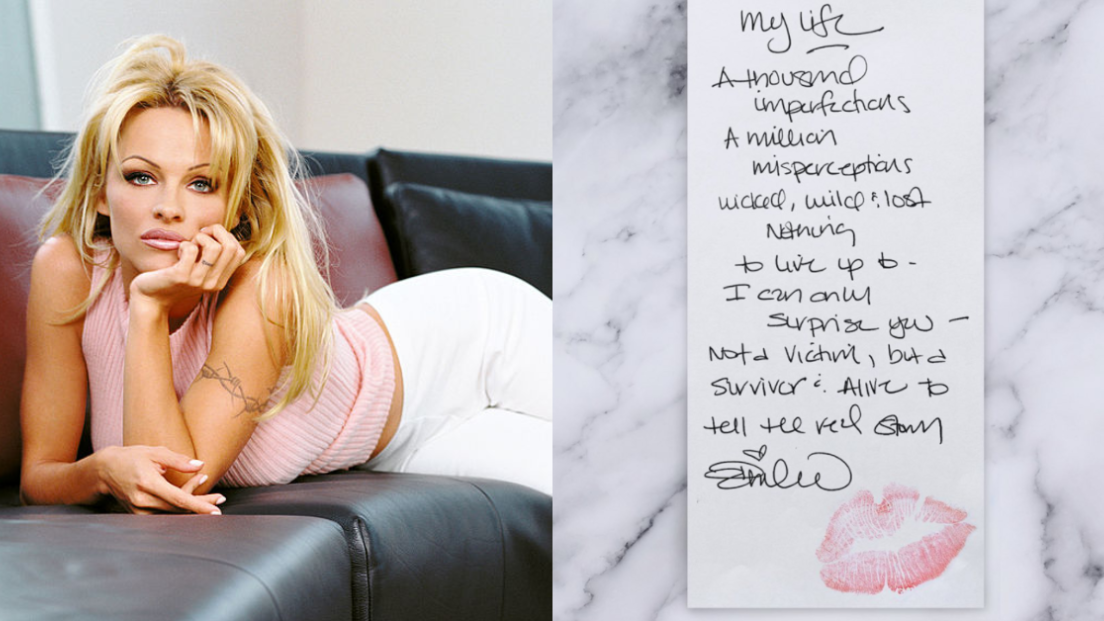 My life
A thousand
imperfections
A million
misperceptions
wicked, wild & lost
Nothing
to live up to -
I can only
surprise you -
Not a victim, but a
survivor & Alive to
tell the real story